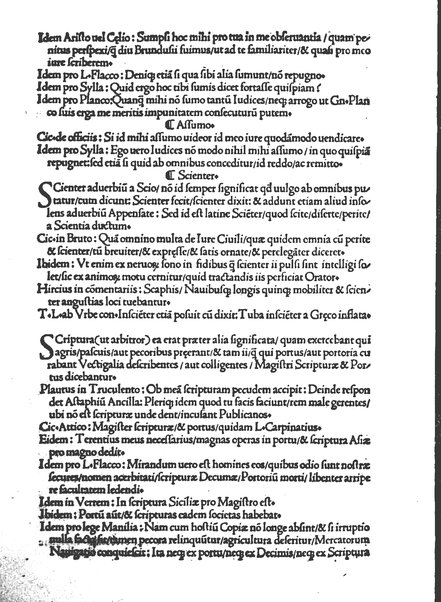 Idem Aristo uel Cęlio: Sumpsi hoc mihi pro tua in me obseruantia / quam pe-
nitus perspexi/q̄ diu Brundusii fuimus/ut ad te familiariter/& quasi pro meo
iure scriberem•
Idem pro L•Flacco: Deniq; etiā si qua sibi alia sumunt/nō repugno•
Idem pro Sylla: Quid ergo hoc tibi sumis dicet fortasse quispiam?
Idem pro Planco: Quanq̄ mihi nō sumo tantū Iudices/neq; arrogo ut Gn•Plan
co suis erga me meritis impunitatem consecuturū putem•
¶ Assumo•
Cic•de officiis: Si id mihi assumo uideor id meo iure quodāmodo uendicare•
Idem pro Sylla: Ego uero Iudices nō modo nihil mihi assumo/in quo quispiā
repugnet:sed etiā si quid ab omnibus conceditur/id reddo/ac remitto•
¶ Scienter•
Scienter aduerbiū a Scio/nō id semper significat qd uulgo ab omnibus pu-
tatur/cum dicunt: Scienter fecit/scienter dixit: & addunt etiam aliud inso
lens aduerbiū Appensate: Sed id est latine Sciēter/quod scite/diserte/perite/
a Scientia ductum•
Cic•in Bruto: Quā omnino multa de Iure Ciuili/quæ quidem omnia cū perite
& scienter/tū breuiter/& expresse/& satis ornate/& perelegāter diceret•
Ibidem: Vt enim ex neruorū sono in fidibus q̄ scienter ii pulsi sint intelligi so-
let/sic ex animorū motu cernitur/quid tractandis iis perficiat Orator•
Hircius in cōmentariis: Scaphis/Nauibusq; longis quinq; mobiliter & scien-
ter angustias loci tuebantur•
T•L•ab Vrbe con•Insciēter etiā posuit cū dixit: Tuba insciēter a Gręco inflata•
Scriptura(ut arbitror) ea erat præter alia significata/quam exercebant qui
agris/pascuis/aut pecoribus pręerant/& tam ii/q̄ qui portus/aut portoria cu
rabant Vectigalia describentes/aut colligentes/Magistri Scripturæ & Por-
tus dicebantur•
Plautus in Truculento: Ob meā scripturam pecudem accipit: Deinde respon
det Astaphiū Ancilla: Pleriq; idem quod tu facis faciunt/rem male gerentes/
ubi nō est scripturæ unde dent/incusant Publicanos•
Cic•Attico: Magister scripturæ/& portus/quidam L•Carpinatius•
Eidem: Terentius meus necessarius/magnas operas in portu/& scriptura Asiæ
pro magno dedit•
Idem pro L•Flacco: Mirandum uero est homines eos/quibus odio sunt nostræ
secures/nomen acerbitati/scripturæ Decumæ/Portoriū morti/libenter arripe
re facultatem ledendi•
Idem in Verrem: In scriptura Siciliæ pro Magistro est•
Ibidem: Portū aūt/& scripturas eadem societas habebat•
Idem pro lege Manilia: Nam cum hostiū Copiæ nō longe absūt/& si irruptio
nulla facta tamen pecora relinquūtur/agricultura deseritur/Mercatorum
Nauigatio conquiescit: Ita neq; ex portu/neq; ex Decimis/neq; ex Scriptura